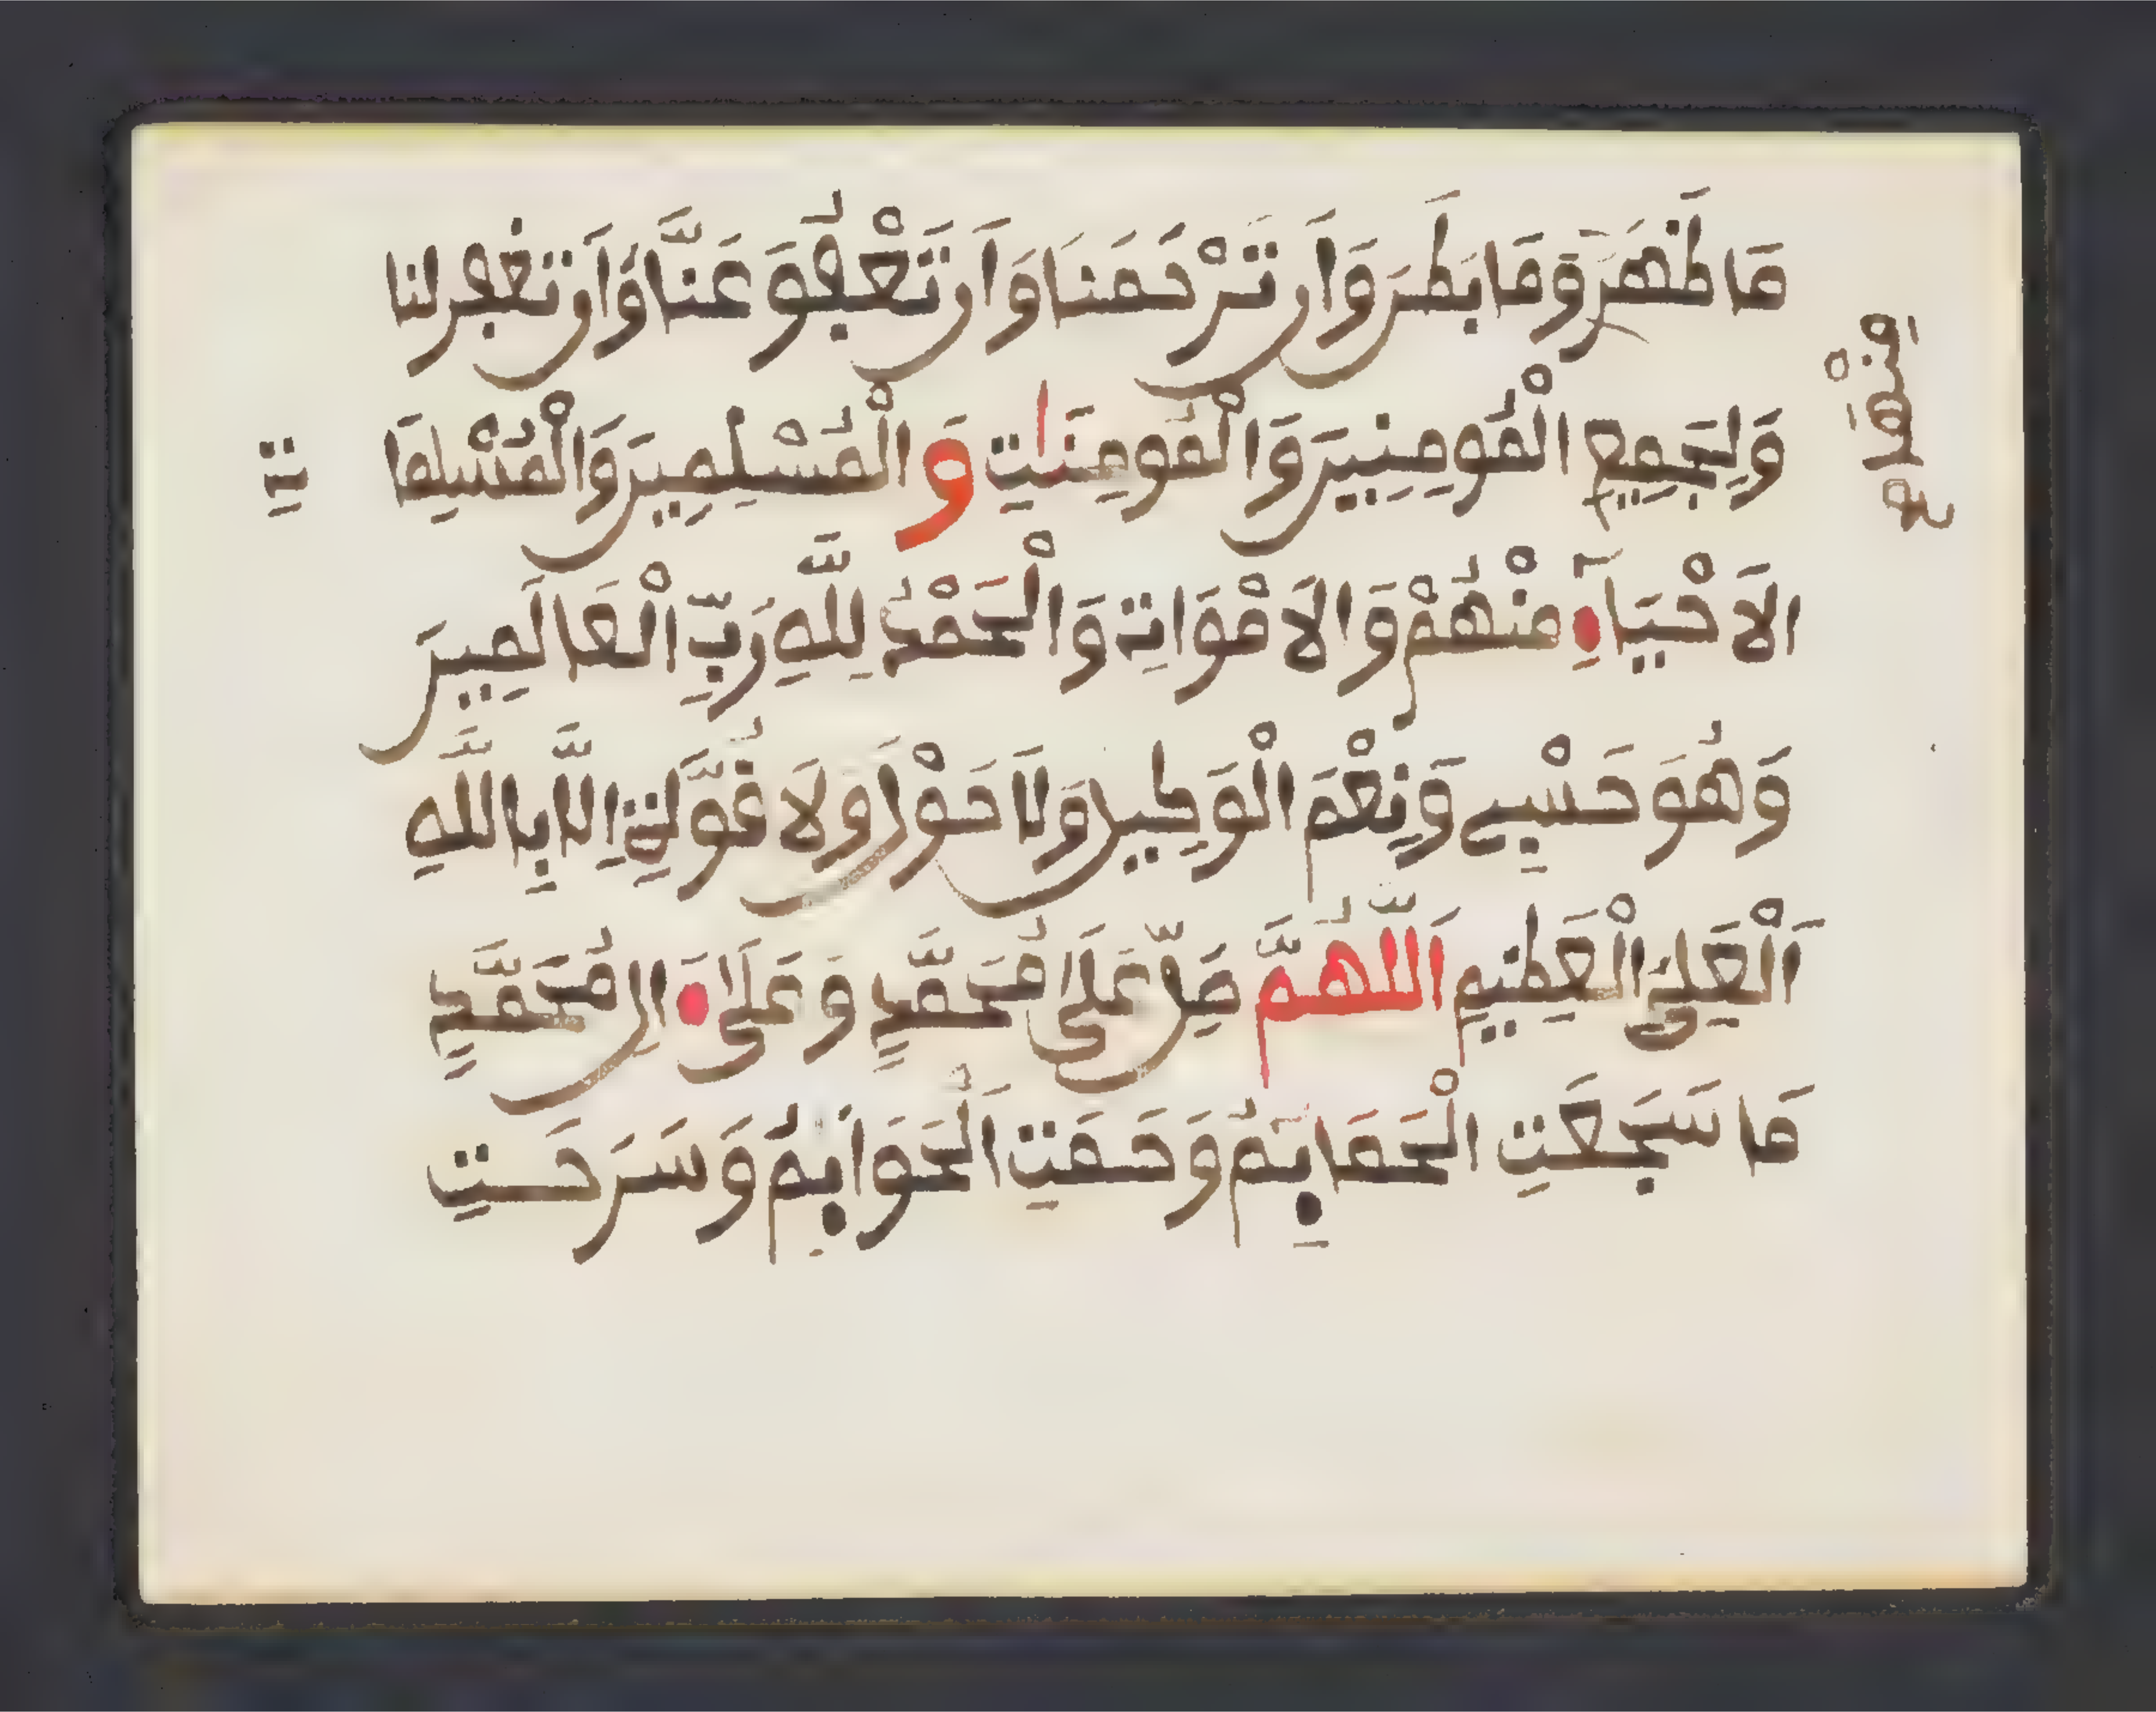 مَا ظَهَرَ وَمَا بَطَنَ وَأَن تَرْحَمَنَا وَأَن تَعْفُوَ عَنَّا وَأَن تَغْفِرَ لَنَا
وَلِجَمِيعِ الْمُومِنِينَ وَالْمُومِنَاتِ وَالْمُسْلِمِينَ وَالْمُسْلِمَا
تِ
الَاحْيَآءِ مِنْهُمْ وَالَامْوَاتِ وَالْحَمْدُ لِلَّهِ رَبِّ الْعَالَمِينَ
وَهُوَ حَسْبِي وَنِعْمَ الْوَكِيلُ وَلَا حَوْلَ وَلَا قُوَّةَ إِلَّا بِاللَّهِ
اَلْعَلِيِّ الْعَظِيمِ اَللَّهُمَّ صَلِّ عَلَى مُحَمَّدٍ وَعَلَى ءَالِ مُحَمَّدٍ
مَا سَجَعَتِ الْحَمَايِمُ وَحَمَتِ اَلْحَوَايِمُ وَسَرَحَتِ